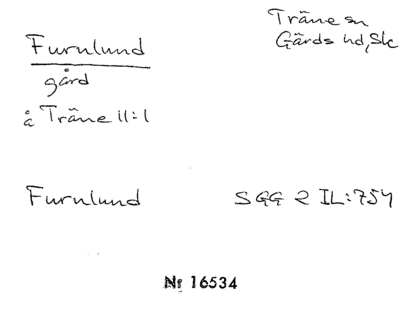 Träne sn
Gärds hd, Sk
Furnlund
gård
å Träne 11:1
Furnlund SGG 2 IL:754
Nr 16534